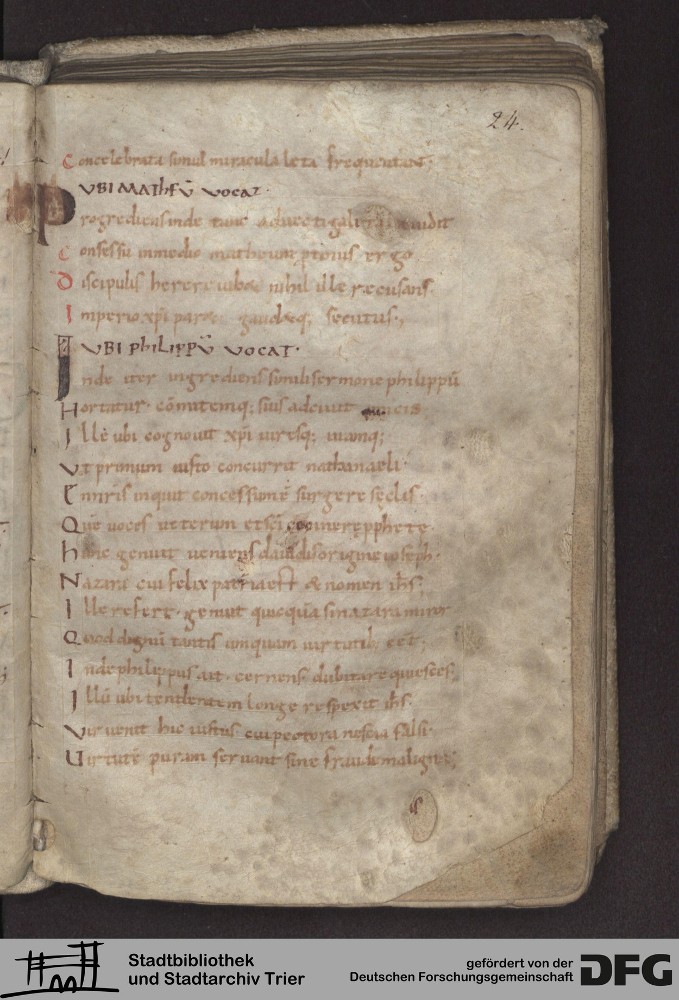 24.
Concelebrata simul miracula leta frequentant.
UBI MATHEŪ VOCAT.
Progrediens inde tunc ad vectigalia vidit
Consessu in medio matheum ptinus ergo
Discipulis herere iubet nihil ille recusans
Imperio xp̄i paret gaudetq; secutus.,
UBI PHILIPPŪ VOCAT.
Inde iter ingrediens simili sermone philippū
Hortatur. cōmitemq; suis adciuit
Ille ubi cognouit xp̄i uirtsq; uiamq;
Vt primum iusto concurrit nathanaeli.
E miris inquit concessum ē surgere seclis.
Quē uoces ueterum et sc̄i cecinere pphete.
hunc genuit ueniens dauidis origine ioseph.
Nazara cui felix patria est & nomen ih̄s;
Ille refert. genuit quicquā si nazara miror
Quod dignū tantis umquam uirtutib; eet;
Inde philippus ait. cernens dubitare quiesces;
Illū ubi tendentem longe respexit ih̄s.
Vir uenit hic iustus cui pectora nescia falsi.
Uirtutē puram seruant sine fraude maligna;
Stadtbibliothek
und Stadtarchiv Trier
gefördert von der
Deutschen Forschungsgemeinschaft
DFG